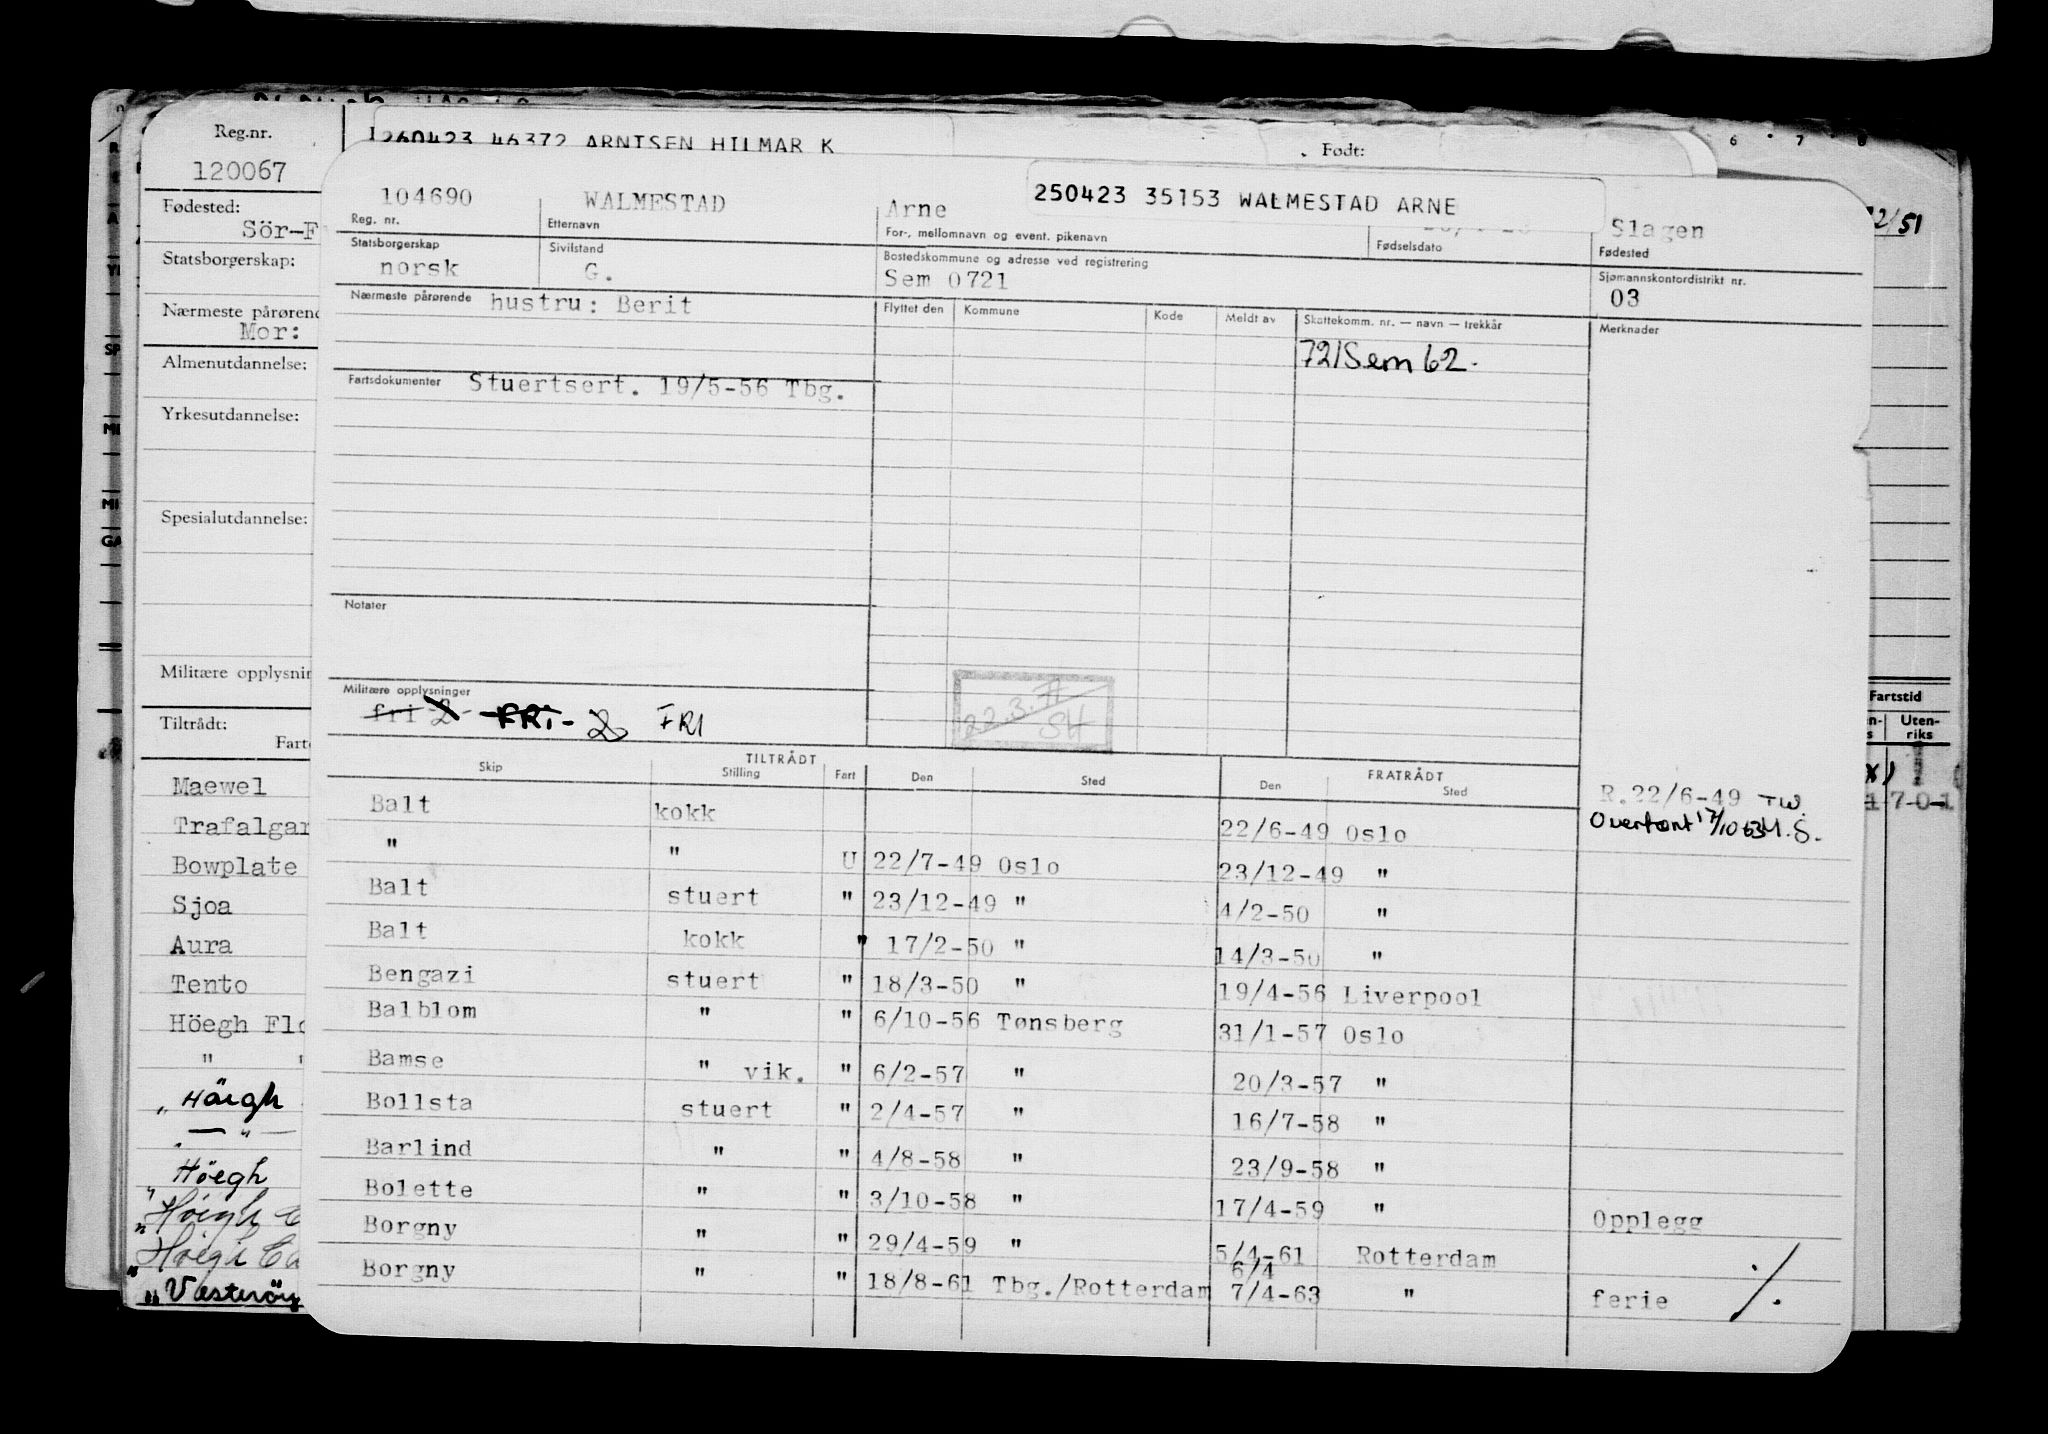 Reg.nr.
120067
Fødested:
Sör-F
Statsborgerskap:
Nærmeste pårørend
Mor:
Almenutdannelse:
Yrkesutdannelse:
Spesialutdannelse:
Militære opplysnin
Tiltrådt:
Fart
Maewel
Trafalgar
Bowplate
Sjoa
Aura
Tento
Höegh Flo
" "
" Höigh
" — " —
Höegh
" Höigh
" Höegh
" Vesteröy
1260423 46372 ARNTSEN HILMAR K
Født:
6 7 8
104690 WALMESTAD Arne 250423 35153 WALMESTAD ARNE Slagen
Reg. nr. Etternavn For-, mellomnavn og event. pikenavn Fødselsdato Fødested
Statsborgerskap Sivilstand Bostedskommune og adresse ved registrering Sjømannskontordistrikt nr.
norsk G. Sem 0721 03
Nærmeste pårørende hustru: Berit Flyttet den Kommune Kode Meldt av Skattekomm. nr. — navn — trekkår Merknader
721 Sem 62.
Fartsdokumenter Stuertsert. 19/5-56 Tbg.
Notater
Militære opplysninger
fri 2 FRI- 2 FRI
22.3.71
SH
TILTRÅDT FRATRÅDT
Skip Stilling Fart Den Sted Den Sted
Balt kokk 22/6-49 Oslo R.22/6-49 TW.
Overført 17/10 63 H.S.
" " U 22/7-49 Oslo 23/12-49 "
Balt stuert " 23/12-49 " 4/2-50 "
Balt kokk " 17/2-50 " 14/3-50 "
Bengazi stuert " 18/3-50 " 19/4-56 Liverpool
Balblom " " 6/10-56 Tønsberg 31/1-57 Oslo
Bamse " vik. " 6/2-57 " 20/3-57 "
Bollsta stuert " 2/4-57 " 16/7-58 "
Barlind " " 4/8-58 " 23/9-58 "
Bolette " " 3/10-58 " 17/4-59 " Opplegg
Borgny " " 29/4-59 " 5/4-61 Rotterdam
6/4
Borgny " " 18/8-61 Tbg./Rotterdam 7/4-63 " ferie ./.
2/51
Fartstid
Uten-
riks
1 7-0-1